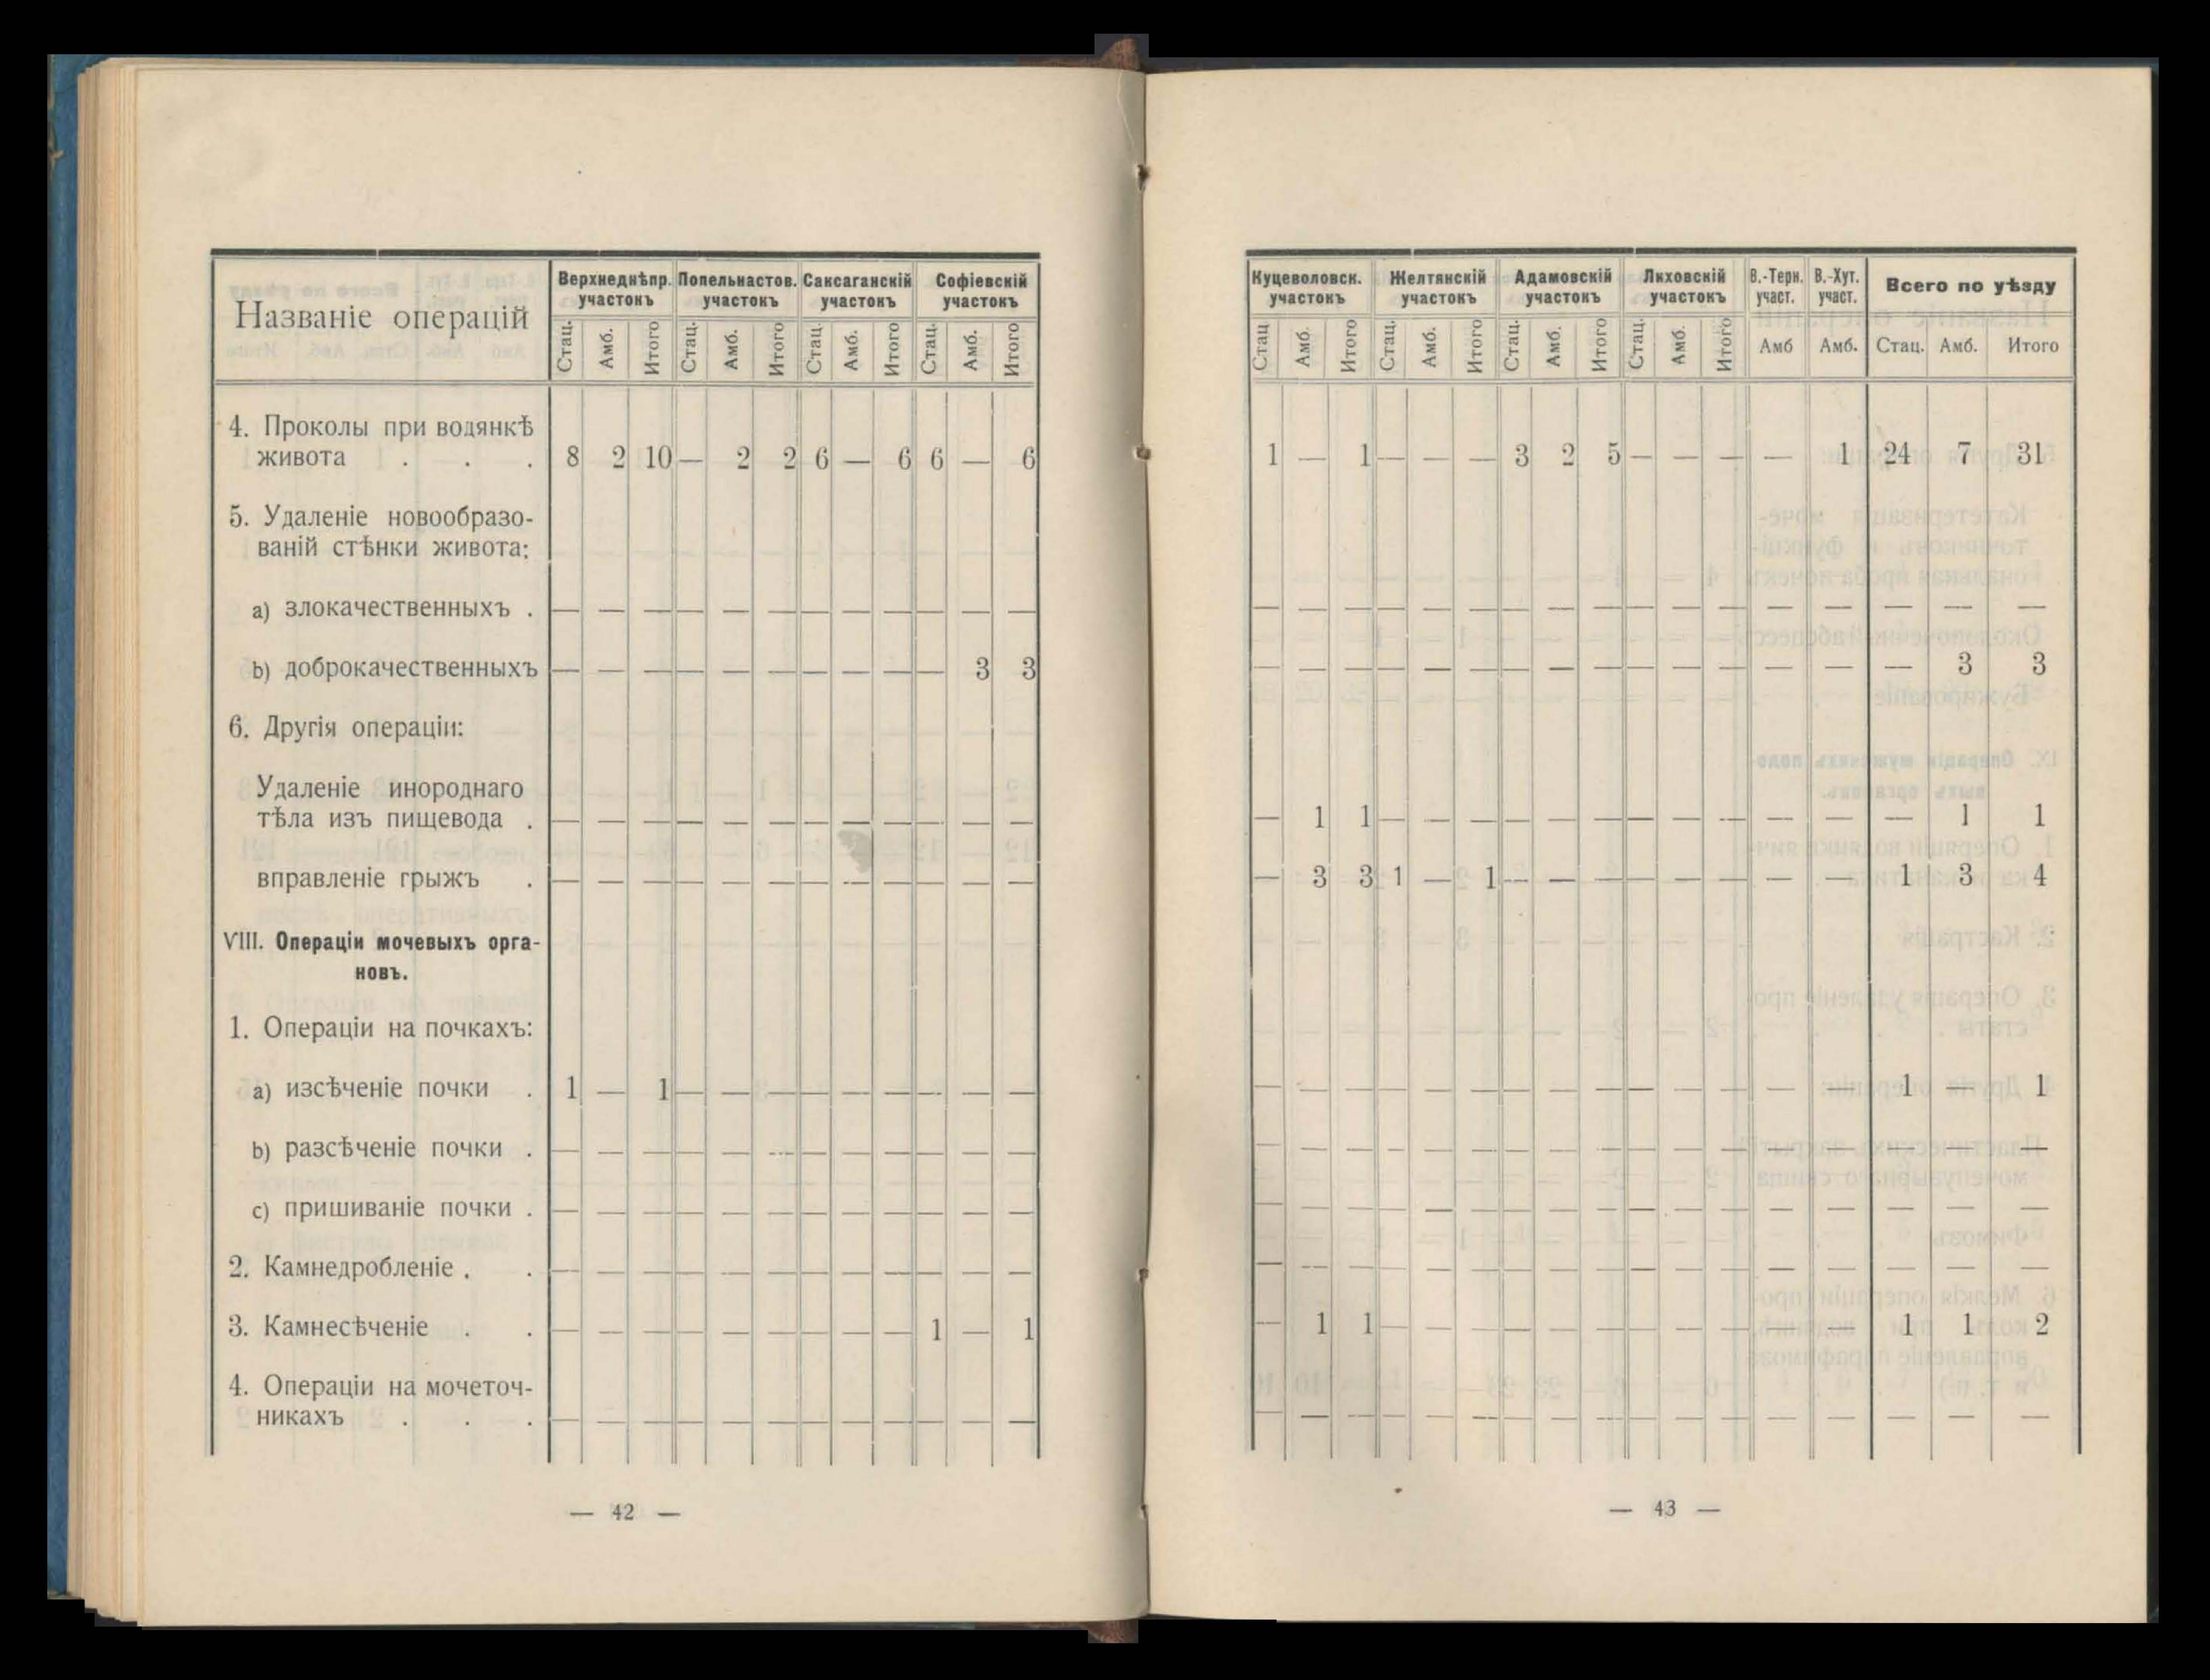 Названіе операцій
Верхнеднѣпр. участокъ
Попельнастов. участокъ
Саксаганскій участокъ
Софіевскій участокъ
Стац. Амб. Итого Стац. Амб. Итого Стац. Амб. Итого Стац. Амб. Итого
4. Проколы при водянкѣ
живота . . . 8 2 10 — 2 2 6 — 6 6 — 6
5. Удаленіе новообразо-
ваній стѣнки живота:
a) злокачественныхъ . — — — — — — — — — — — —
b) доброкачественныхъ — — — — — — — — — — 3 3
6. Другія операціи:
Удаленіе инороднаго
тѣла изъ пищевода . — — — — — — — — — — — —
вправленіе грыжъ . — — — — — — — — — — — —
VIII. Операціи мочевыхъ орга-
новъ.
1. Операціи на почкахъ:
a) изсѣченіе почки . 1 — 1 — — — — — — — — —
b) разсѣченіе почки . — — — — — — — — — — — —
c) пришиваніе почки . — — — — — — — — — — — —
2. Камнедробленіе . . — — — — — — — — — — — —
3. Камнесѣченіе . . — — — — — — — — — 1 — 1
4. Операціи на мочеточ-
никахъ . . . — — — — — — — — — — — —
— 42 —
Куцеволовск. участокъ
Желтянскій участокъ
Адамовскій участокъ
Лиховскій участокъ
В.-Терн. участ.
В.-Хут. участ.
Всего по уѣзду
Стац Амб. Итого Стац. Амб. Итого Стац. Амб. Итого Стац. Амб. Итого Амб Амб. Стац. Амб. Итого
1 — 1 — — — 3 2 5 — — — — 1 24 7 31
— — — — — — — — — — — — — — — — —
— — — — — — — — — — — — — — — 3 3
— 1 1 — — — — — — — — — — — — 1 1
— 3 3 1 — 1 — — — — — — — — 1 3 4
— — — — — — — — — — — — — — 1 — 1
— — — — — — — — — — — — — — — — —
— — — — — — — — — — — — — — — — —
— — — — — — — — — — — — — — — — —
— 1 1 — — — — — — — — — — — 1 1 2
— — — — — — — — — — — — — — — — —
— 43 —